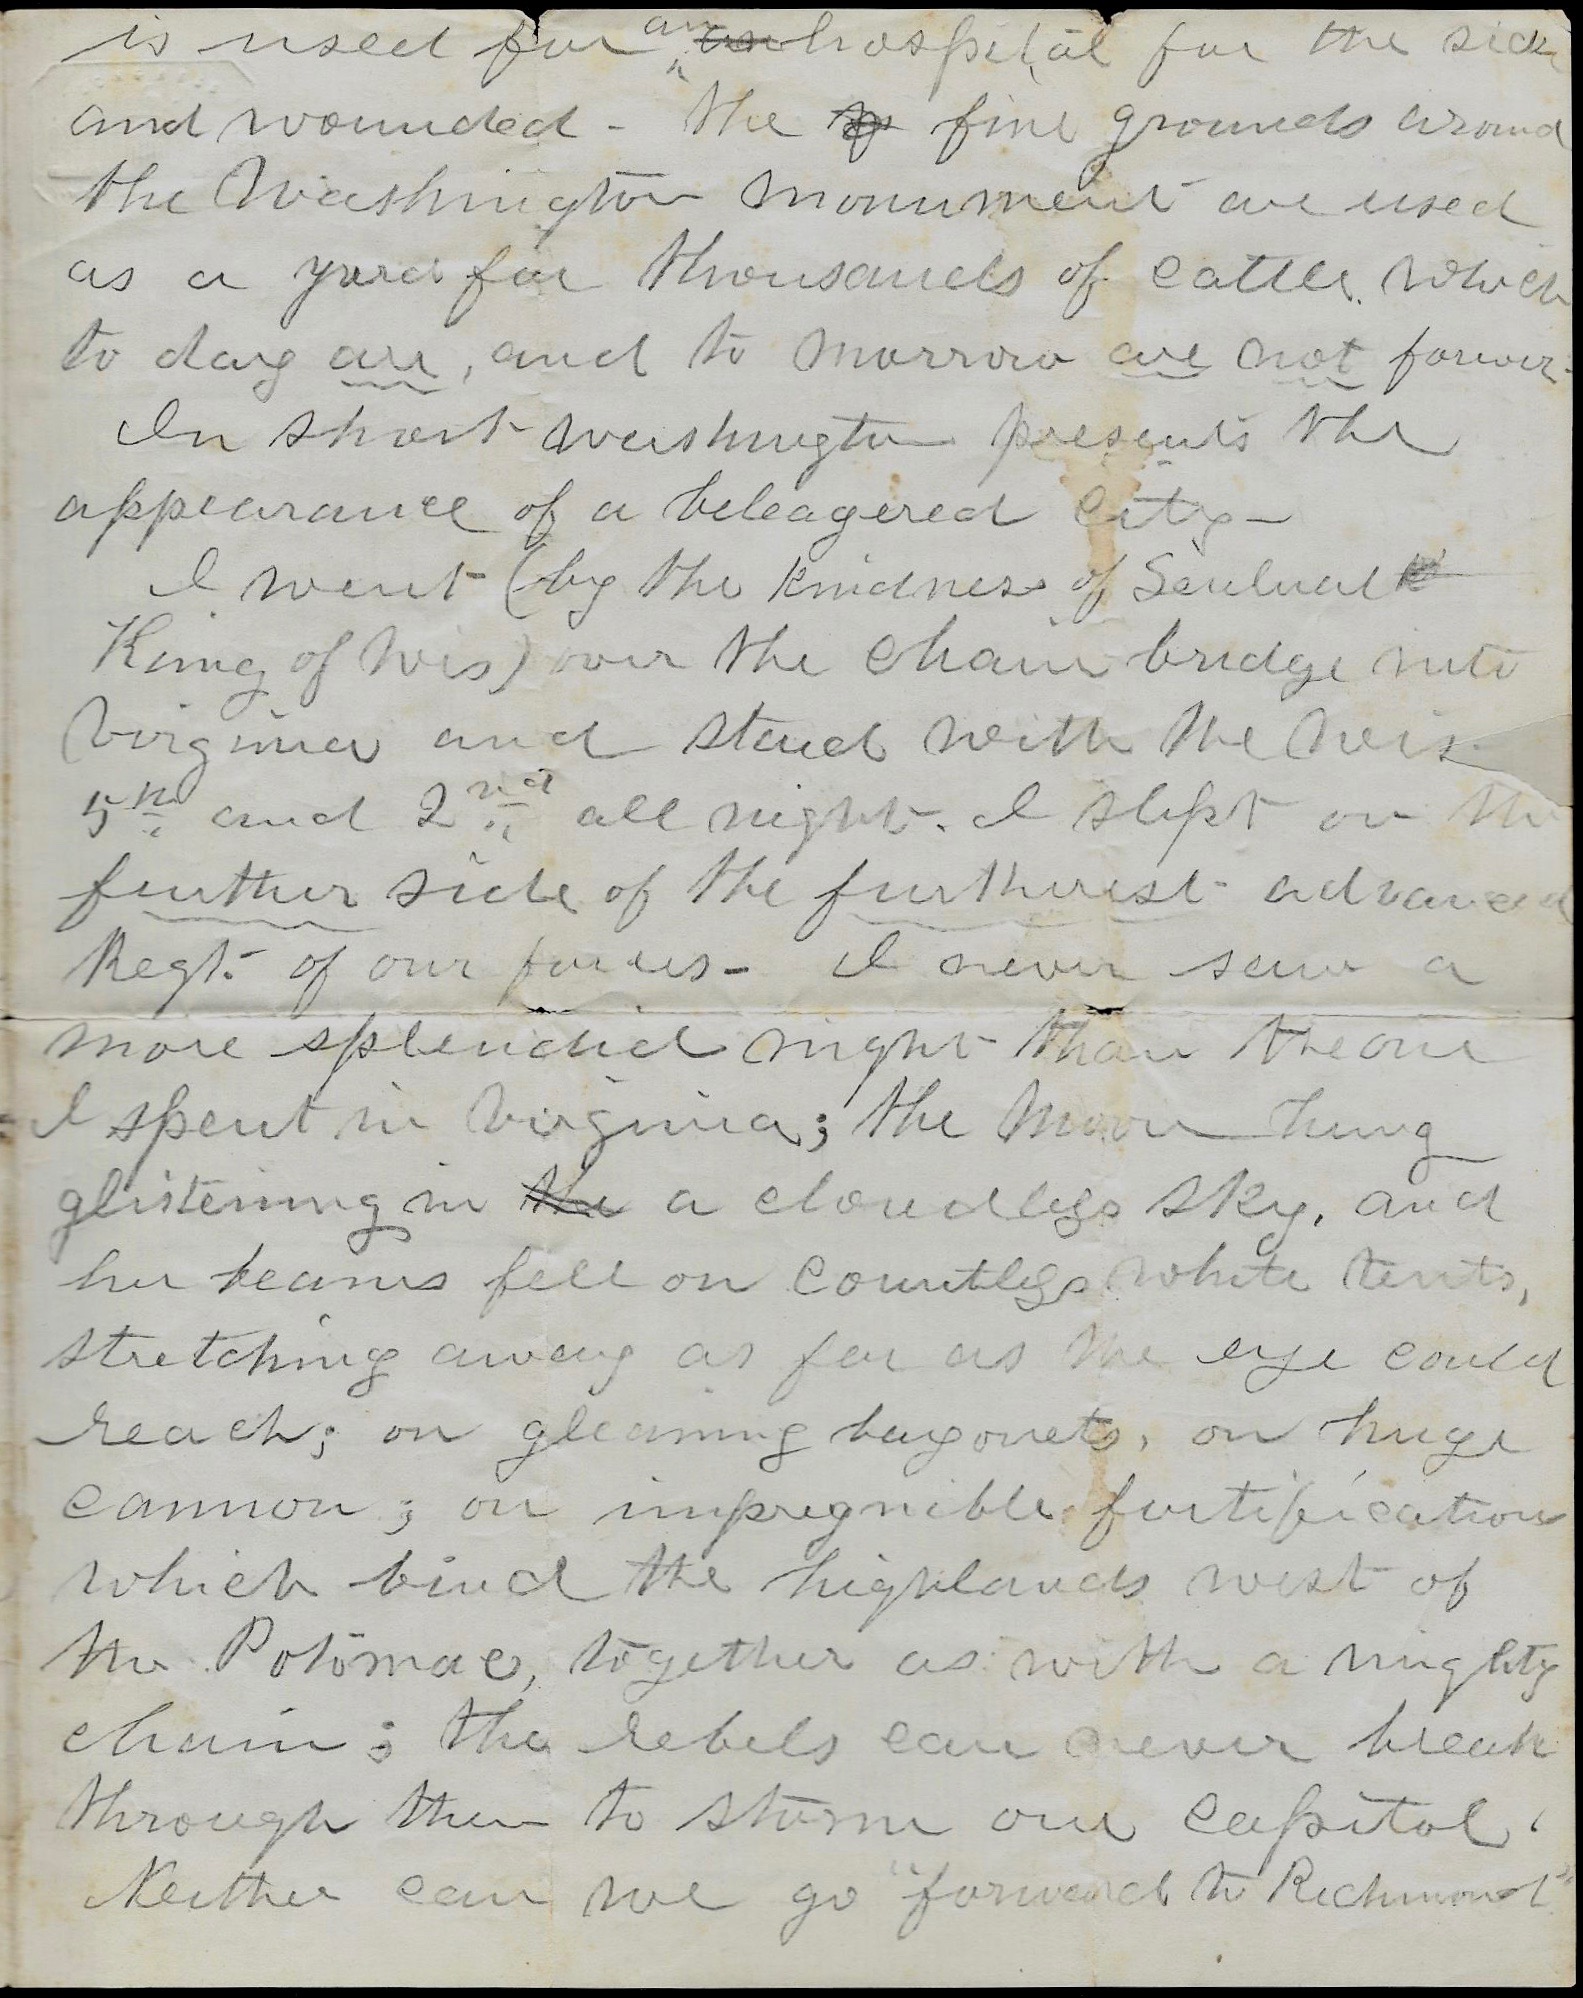 is used for an hospital for the sick
and wounded - the fine grounds around
the Washington Monument are used
as a yard for thousands of cattle. which
to day are, and to morrow are not forever.
In short Washington presents the
appearance of a beleagered City -
I went (by the kindness of
King of Wis) over the Chain bridge into
Virginia and staid with the Wis
5th and 2nd all night. I slept on the
further side of the furtherest advanced
Regt. of our forces - I never saw a
more splendid night than the one
I spent in Virginia; the Moon hung
glistening in the a cloudless sky, and
her beams fell on countless white tents,
stretching away as far as the eye could
reach; on gleaming bayonets, on huge
cannon; on impregnible fortification
which bind the highlands west of
the Potomac, together as with a mighty
chain; the rebels can never break
through them to storm our Capitol.
Neither can we go "forward to Richmond"